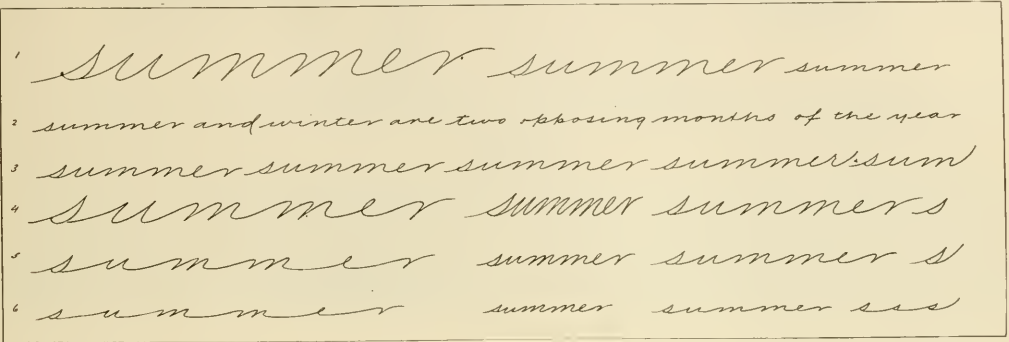 1 summer summer summer
2 summer and winter are two opposing months of the year
3 summer summer summer summer sum
4 summer summer summers
5 summer summer summer s
6 summer summer summer sss